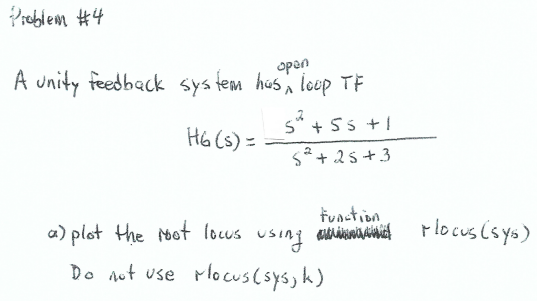 Problem #4
A unity feedback system has open loop TF
HG(s) = (s² + 5s + 1) / (s² + 2s + 3)
a) plot the root locus using function rlocus(sys)
Do not use rlocus(sys, k)